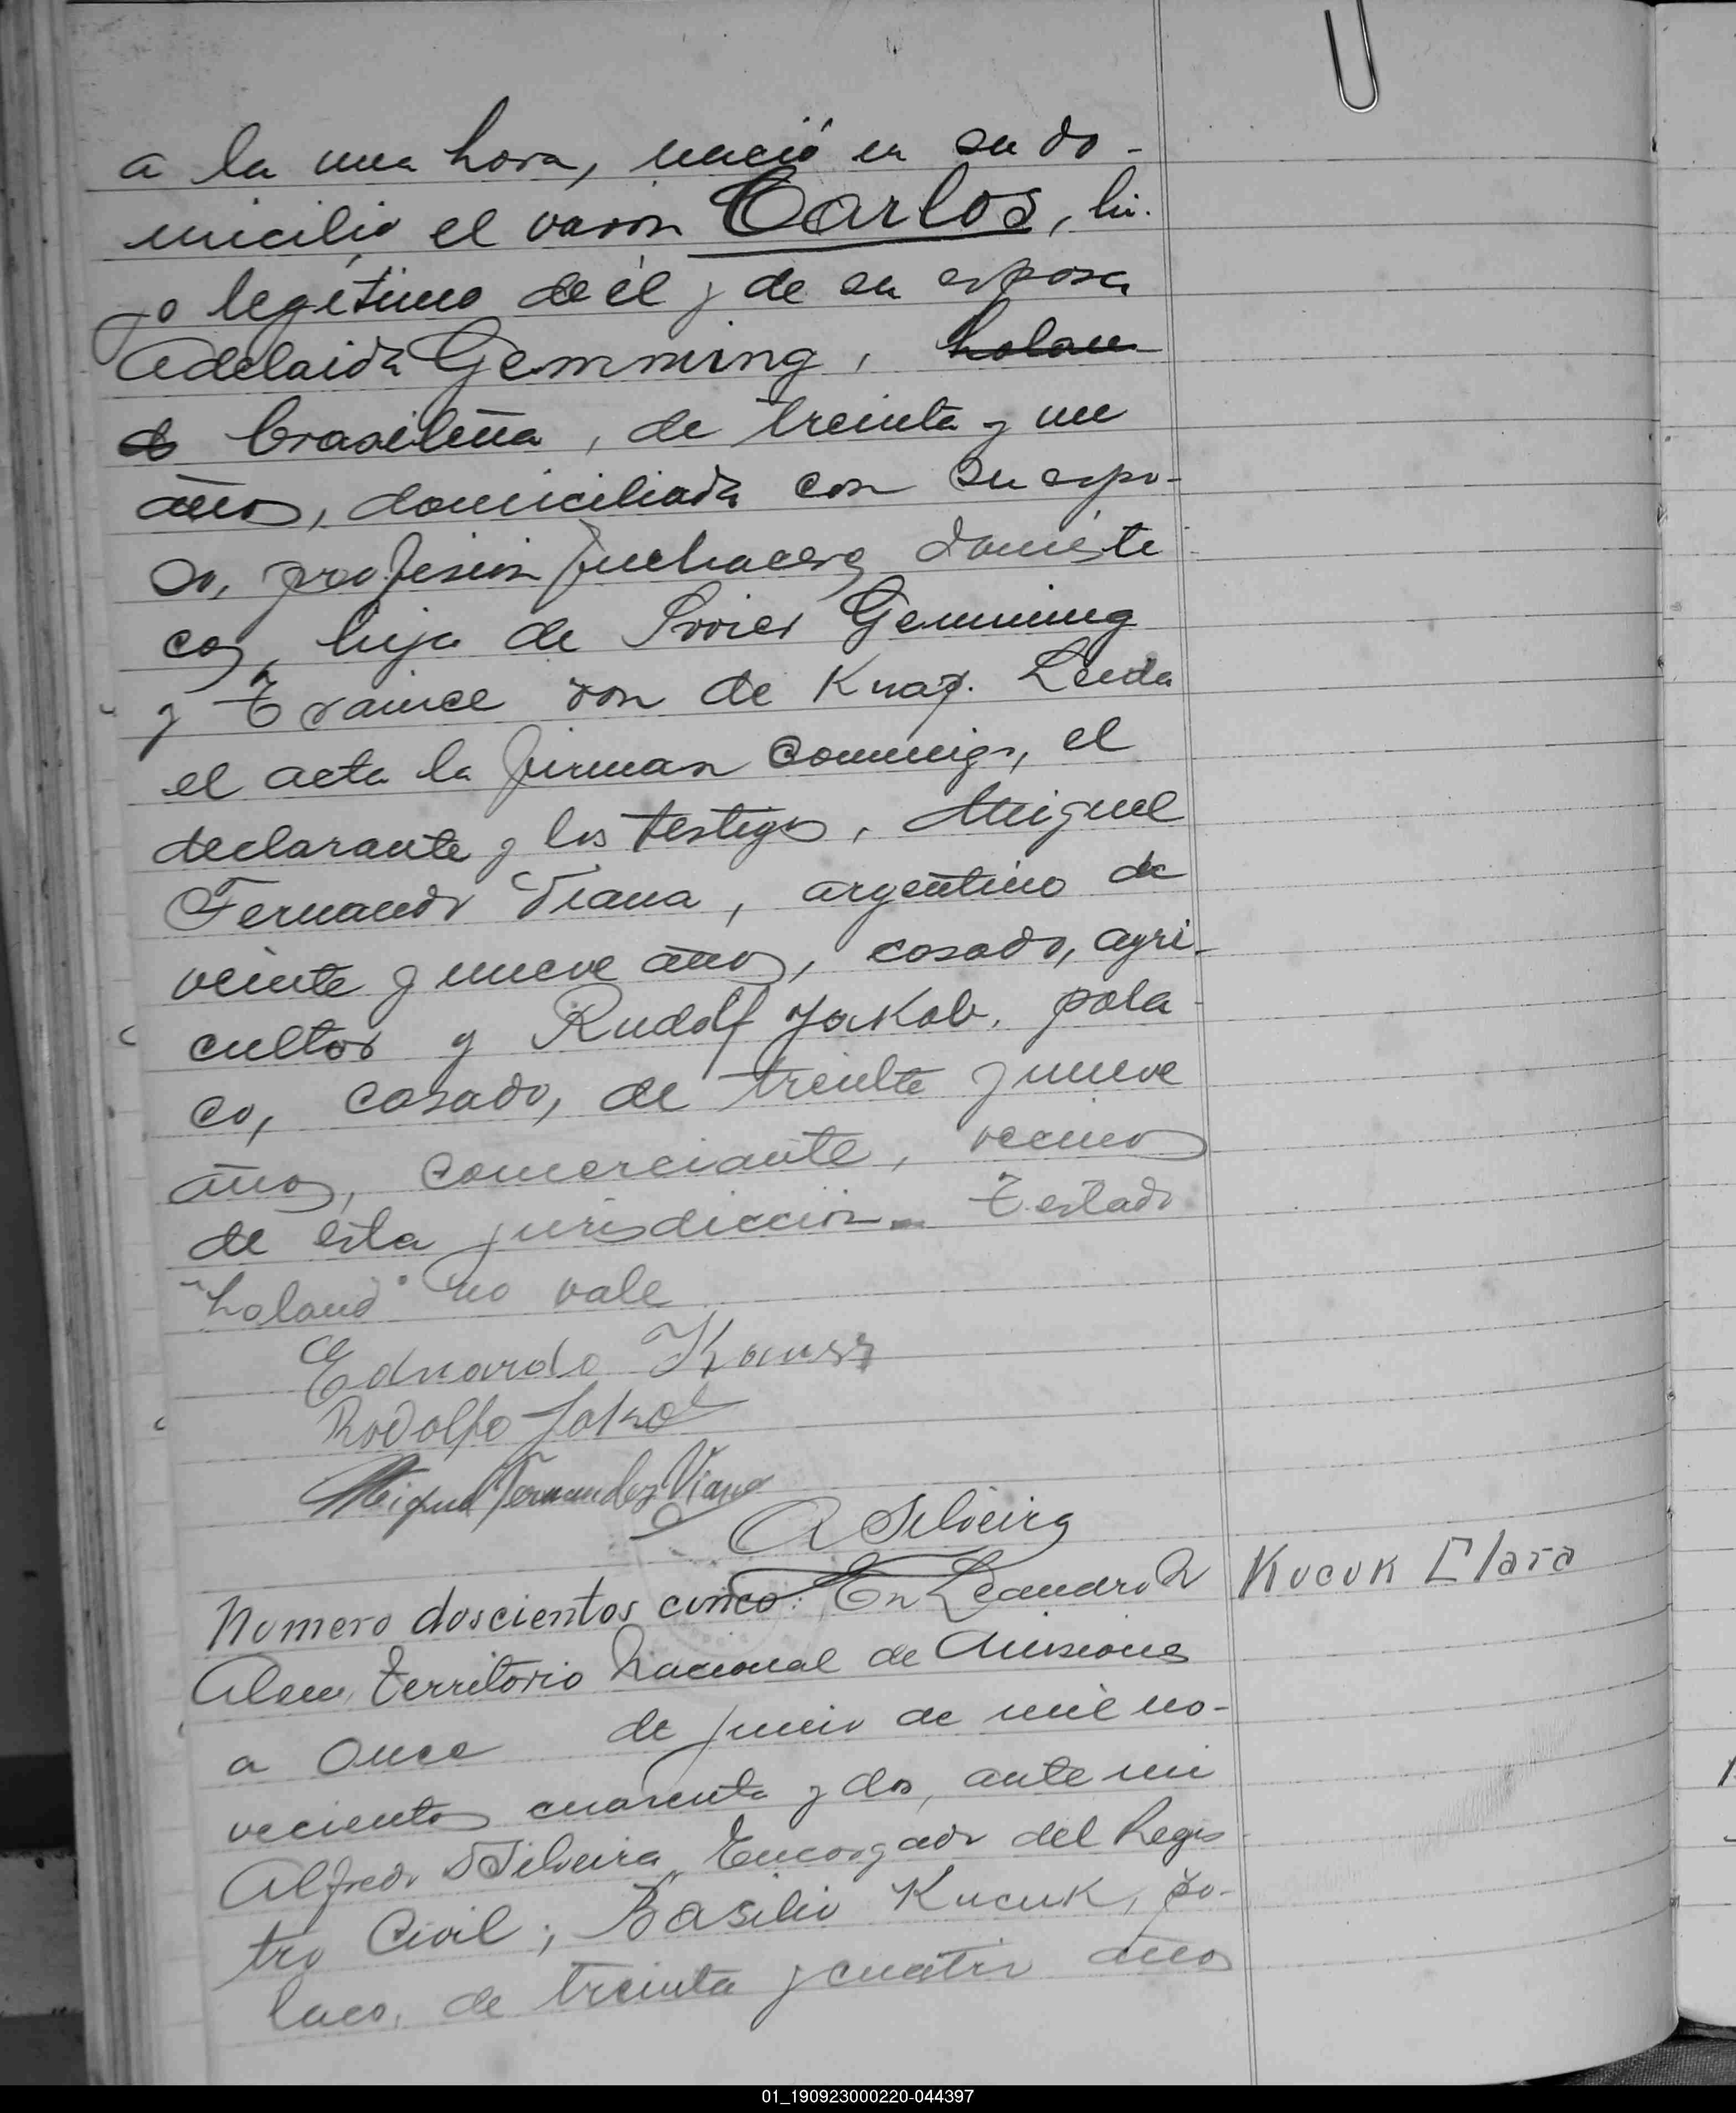 a la una hora, nació en su do-
micilio el varon Carlos, hi-
jo legítimo de él y de su esposa
Adelaida Gemming, holan
d brasileña, de treinta y un
años, domiciliada con su espo-
so, profesion quehaceres domésti
cos, hija de Gemming
y von de Knap. Leida
el acta la firman conmigo, el
declarante y los testigos, Miguel
Fernando Viana, argentino de
veinte y nueve años, casado, agri-
cultor y Rudolf Jakob, pola
co, casado, de treinta y nueve
años, comerciante, vecinos
de esta jurisdiccion. Testado
"holand" no vale
Eduardo
Rodolfo Jakob
Miguel Fernandez Viana
A Silveira
Numero doscientos cinco: En Leandro N Kucuk Clara
Alem, Territorio Nacional de Misiones
a Once de junio de mil no-
vecientos cuarenta y dos, ante mi
Alfredo Silveira, Encargado del Regis
tro Civil; Basilio Kucuk, po-
laco, de treinta y cuatro años
01_190923000220-044397